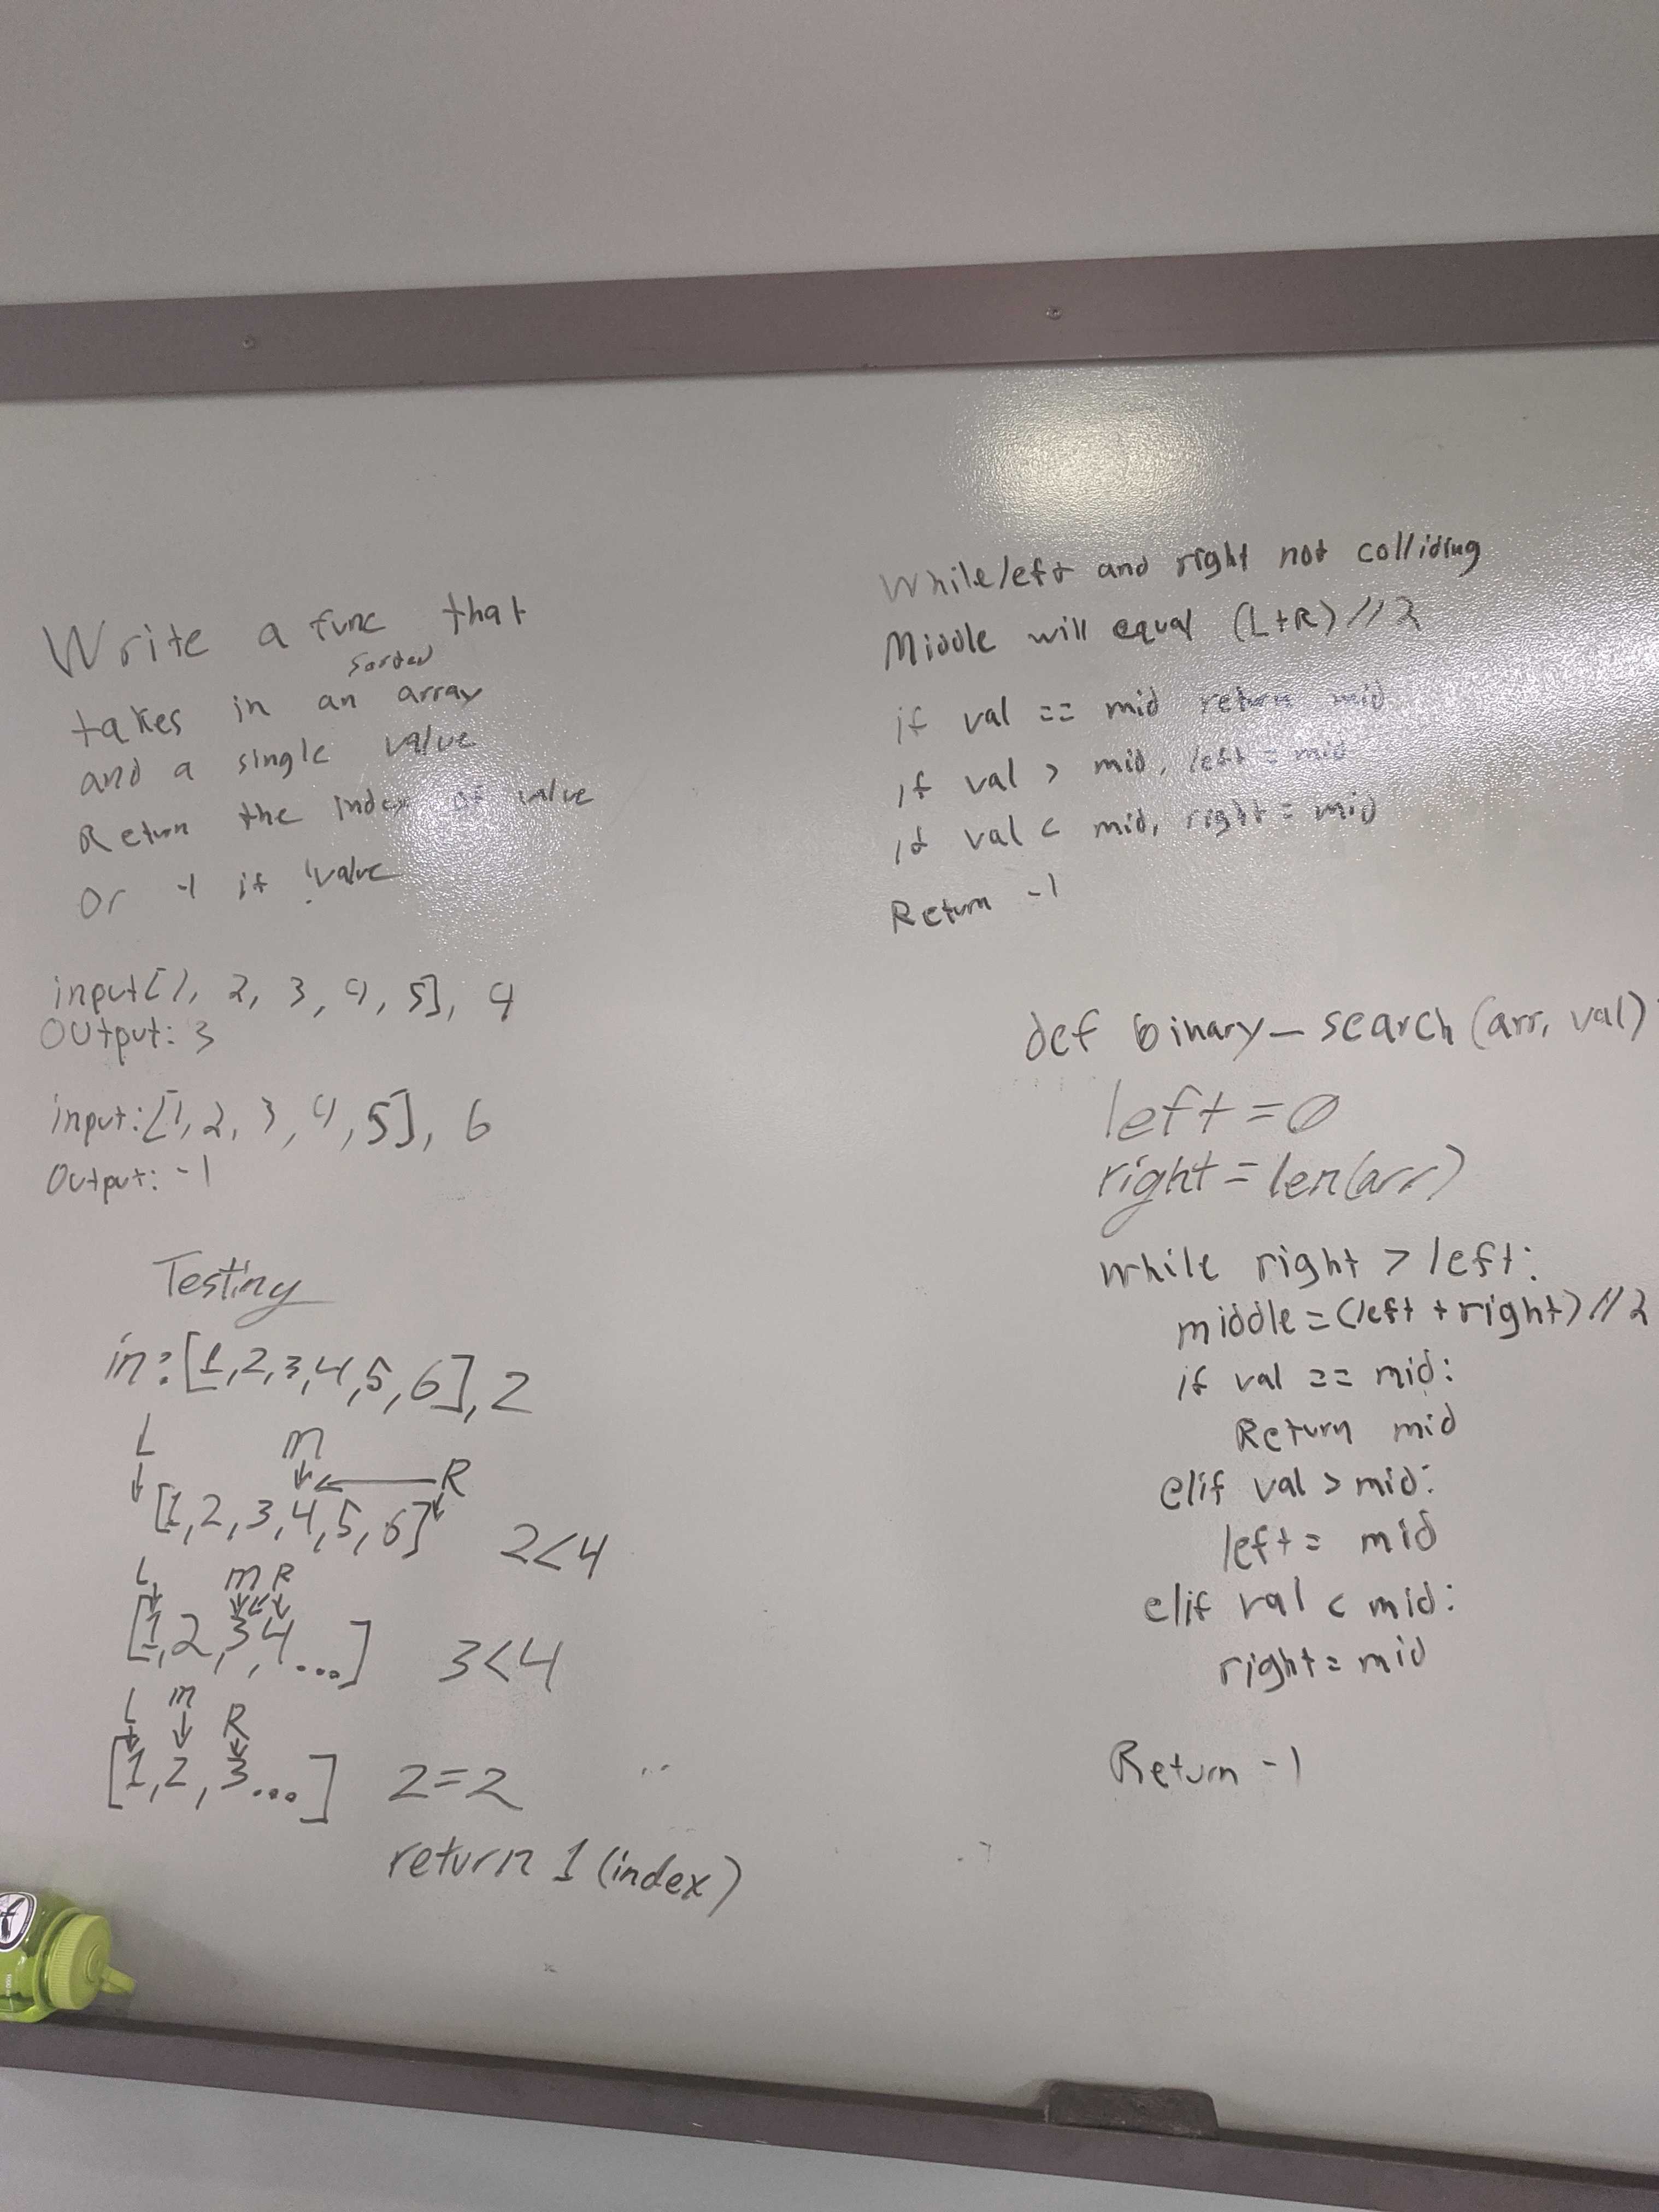 Write a func that
sorted
takes in an array
and a single value
Return the index of value
or -1 if !value
input[1, 2, 3, 4, 5], 4
Output: 3
input:[1, 2, 3, 4, 5], 6
Output: -1
Testing
in:[1,2,3,4,5,6],2
L m R
[1,2,3,4,5,6] 2<4
L m R
[1,2,3,4...] 3<4
L m R
[1,2,3...] 2=2
return 1 (index)
While left and right not colliding
Middle will equal (L+R)//2
if val == mid return mid
if val > mid, left = mid
if val < mid, right = mid
Return -1
def binary_search(arr, val)
left=0
right=len(arr)
while right > left:
middle=(left+right)//2
if val == mid:
Return mid
elif val > mid:
left= mid
elif val < mid:
right= mid
Return -1